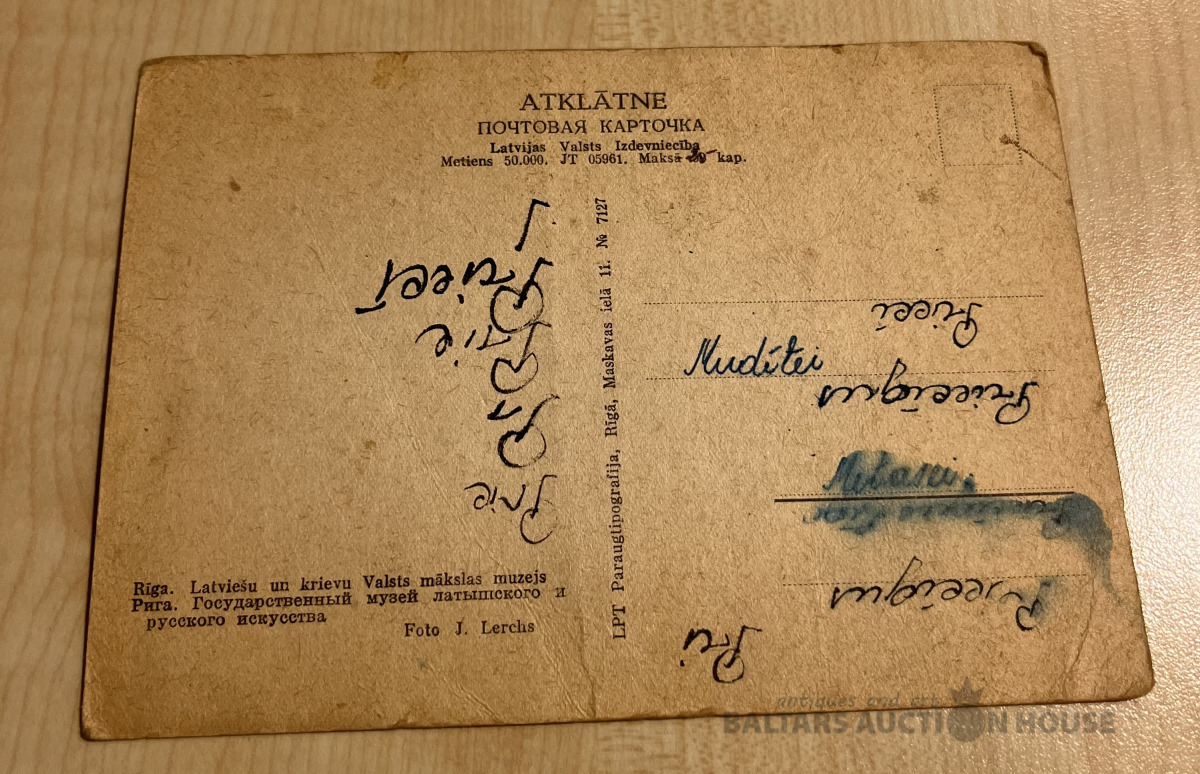 ATKLĀTNE
ПОЧТОВАЯ КАРТОЧКА
Latvijas Valsts Izdevniecība
Metiens 50.000. JT 05961. Maksā kap.
J
Priecī
Prie
Pr
Prie
LPT Paraugtipografija, Rīgā, Maskavas ielā 11. № 7127
Priecī
Mudītei
Priecīgus
Priecīgus
Pri
Rīga. Latviešu un krievu Valsts mākslas muzejs
Рига. Государственный музей латышского и
русского искусства
Foto J. Lerchs
antiques and art
BALTARS AUCTION HOUSE